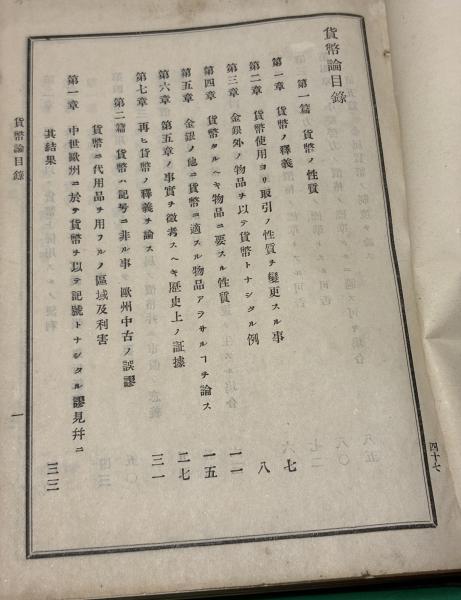 貨幣論目錄
第一篇 貨幣ノ性質
第一章 貨幣ノ釋義
第二章 貨幣使用ヨリ取引ノ性質ヲ變更スル事 七
第三章 金銀外ノ物品ヲ以テ貨幣トナシタル例 八
第四章 貨幣タルヘキ物品ニ要スル性質 一一
第五章 金銀ノ他ニ貨幣ニ適スル物品アラサルヿヲ論ス 一五
第六章 第五章ノ事實ヲ徴考スヘキ歷史上ノ証據 二七
第七章 再ヒ貨幣ノ釋義ヲ論ス 三一
第二篇 貨幣ハ記号ニ非ル事 歐州中古ノ誤謬
貨幣ニ代用品ヲ用フルノ區域及利害
第一章 中世歐州ニ於テ貨幣ヲ以テ記號トナシタル謬見幷ニ
其結果 三三
貨幣論目錄
一
四十七